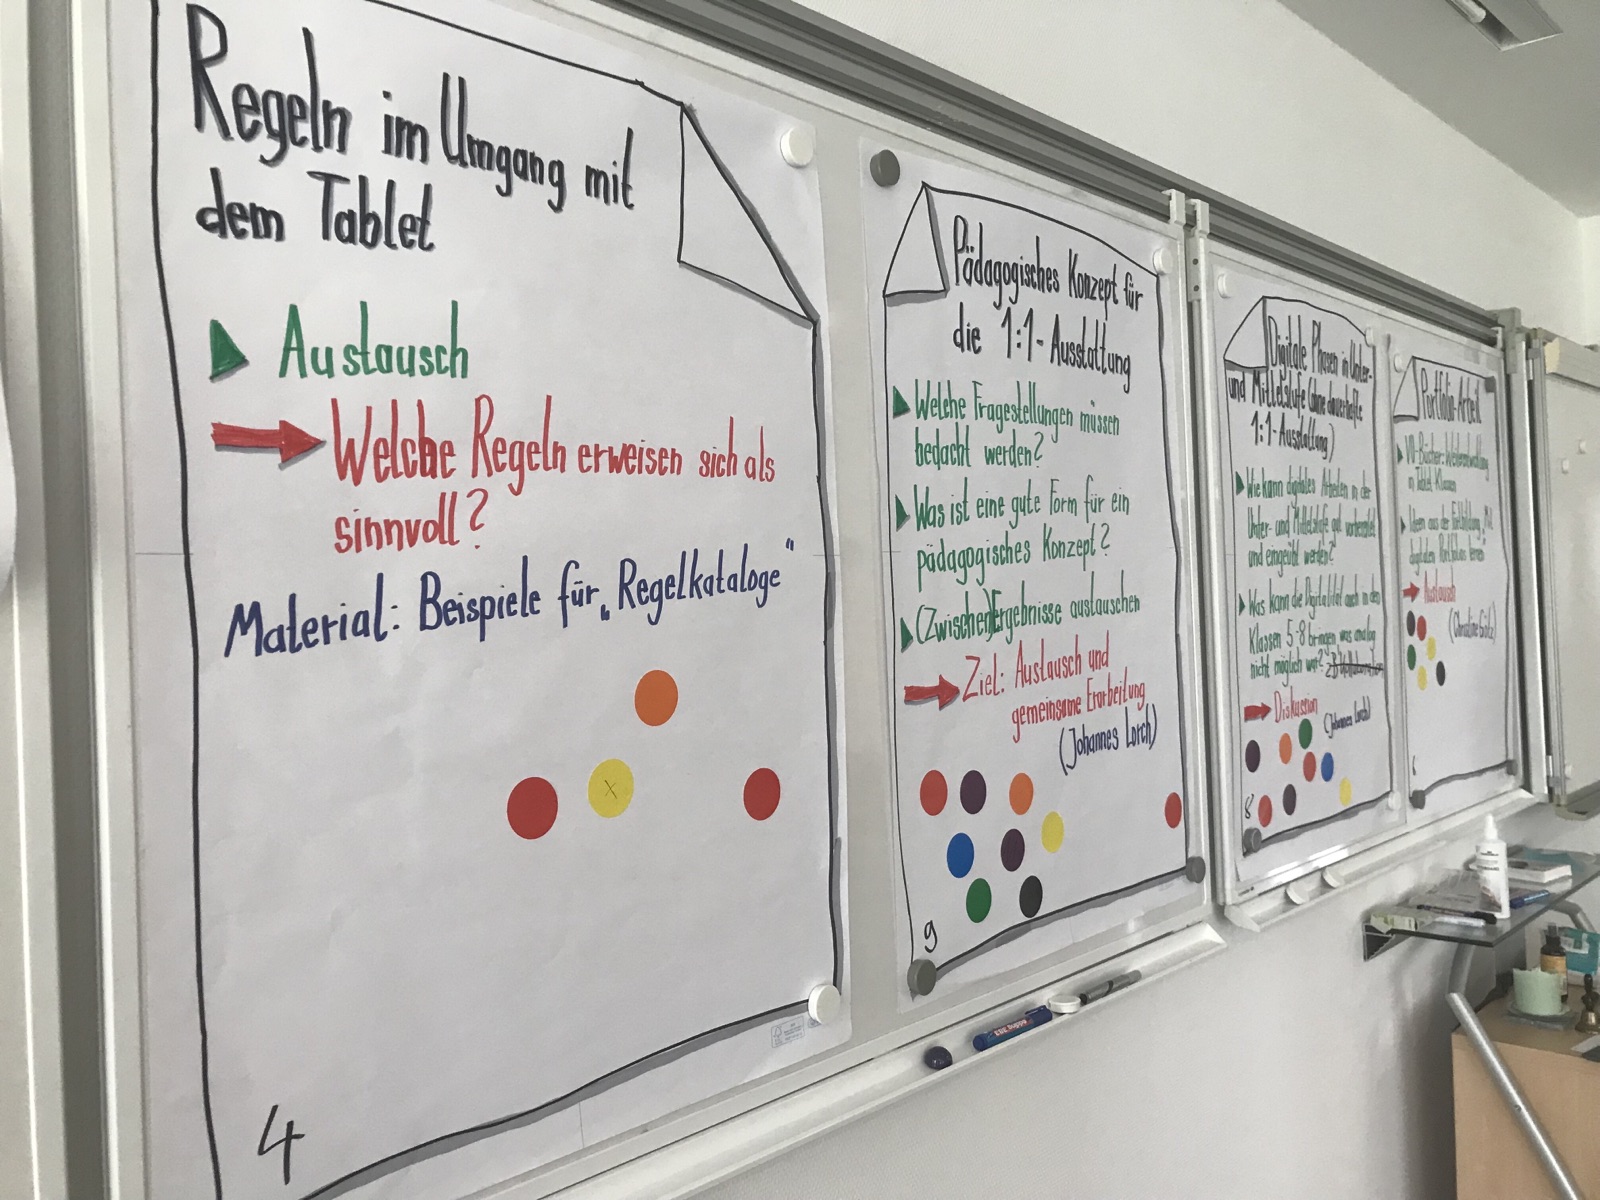 Regeln im Umgang mit
dem Tablet
Austausch
Welche Regeln erweisen sich als
sinnvoll?
Material: Beispiele für „Regelkataloge"
4
Pädagogisches Konzept für
die 1:1-Ausstattung
Welche Fragestellungen müssen
bedacht werden?
Was ist eine gute Form für ein
pädagogisches Konzept?
(Zwischen)Ergebnisse austauschen
Ziel: Austausch und
gemeinsame Erarbeitung
(Johannes Lorch)
9
Digitale Phasen in Unter-
und Mittelstufe (ohne dauerhafte
1:1-Ausstattung)
Wie kann digitales Arbeiten in der
Unter- und Mittelstufe gut vorbereitet
und eingeübt werden?
Was kann die Digitalität auch in den
Klassen 5-8 bringen, was analog
nicht möglich war?
Diskussion
(Johannes Lorch)
8
Portfolio-Arbeit
in Tablet-Klassen
Ideen aus der Fortbildung „Mit
digitalen Portfolios lernen"
Austausch